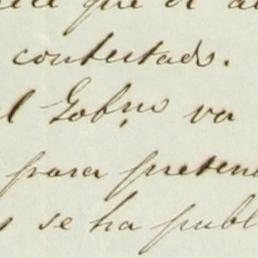 que el
contestado.
el Gobno va
para preten
se ha publ